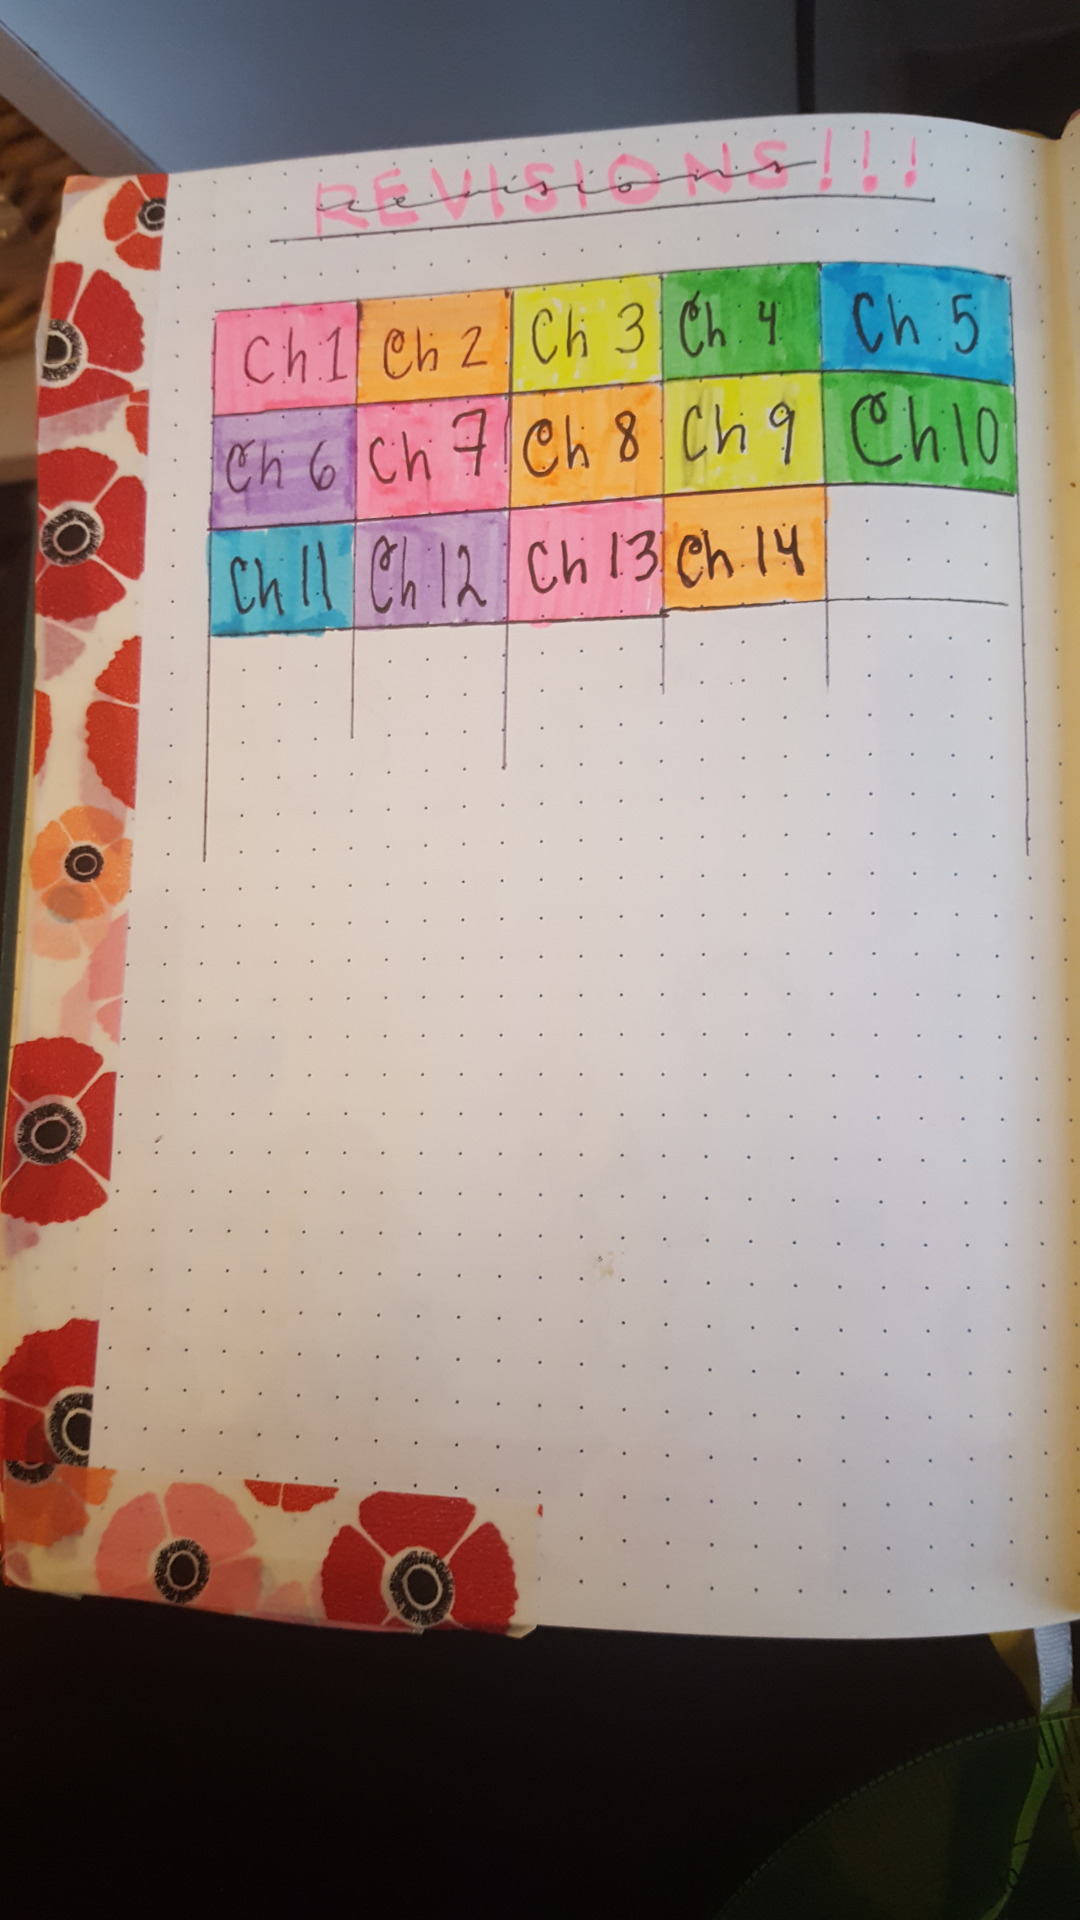 REVISIONS!!!
revisions
Ch 1 Ch 2 Ch 3 Ch 4 Ch 5
Ch 6 Ch 7 Ch 8 Ch 9 Ch 10
Ch 11 Ch 12 Ch 13 Ch 14